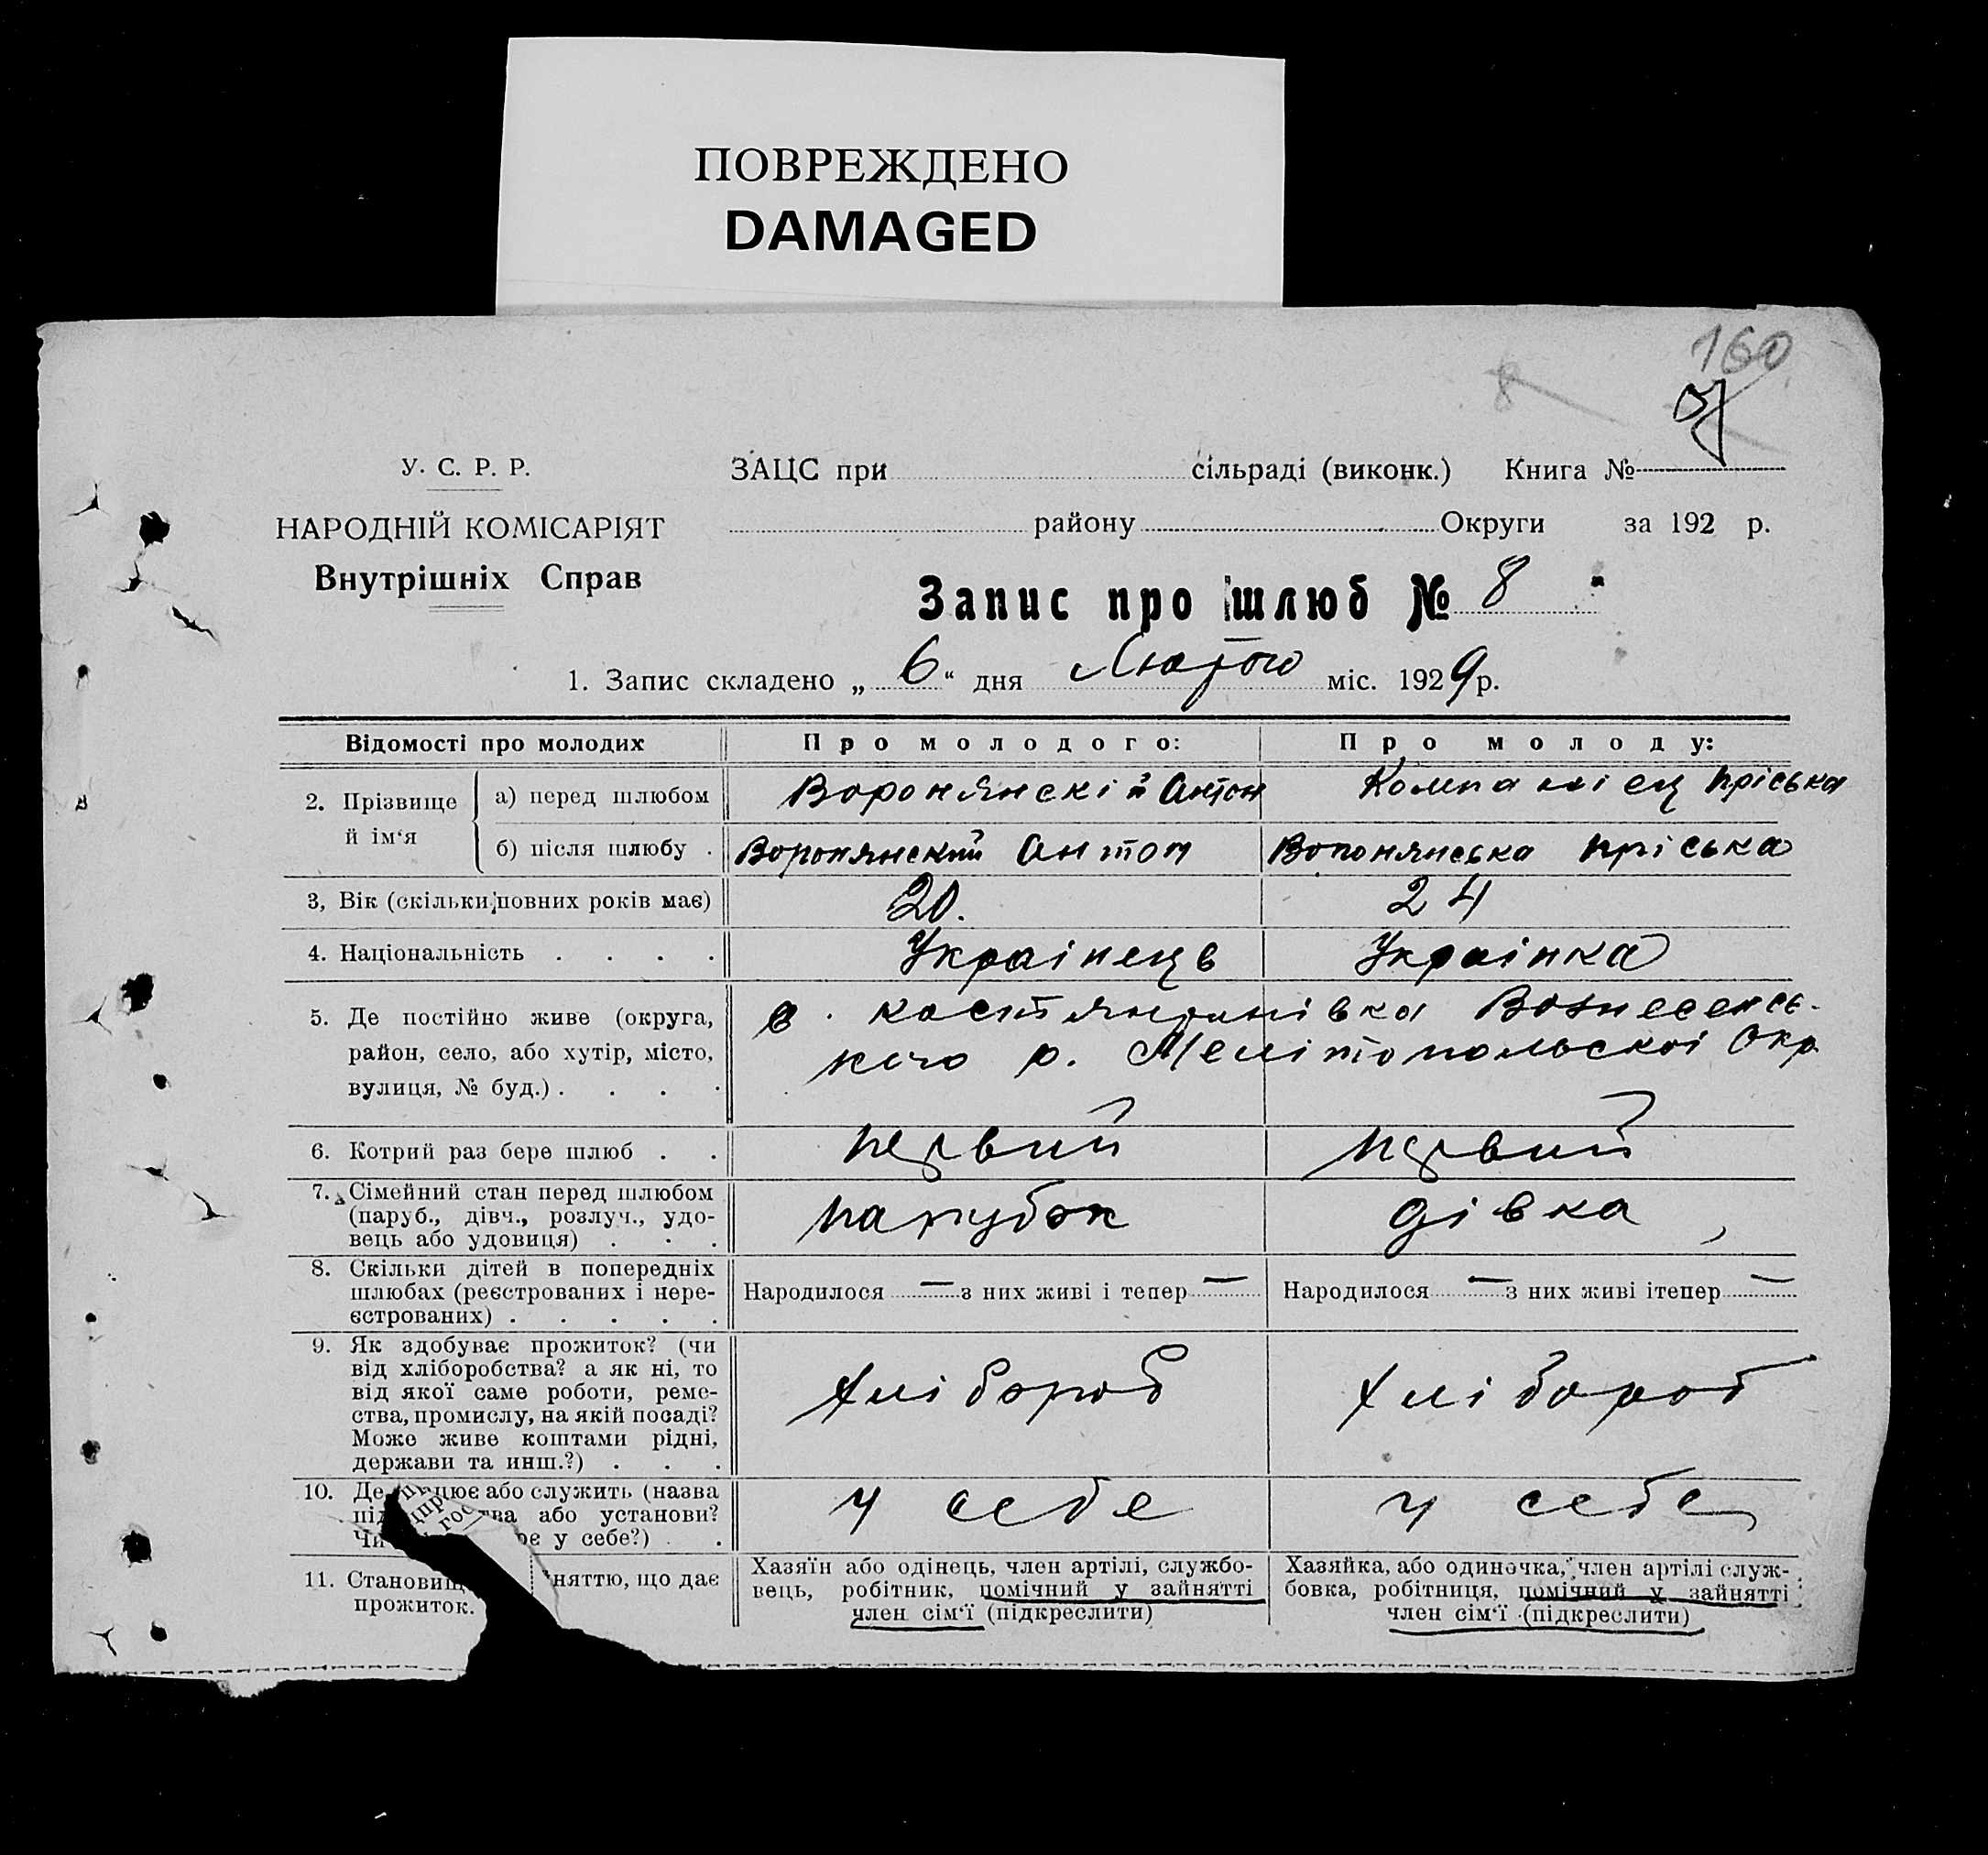 ПОВРЕЖДЕНО
DAMAGED
160
8
У. С. Р. Р.
НАРОДНІЙ КОМІСАРІЯТ
Внутрішніх Справ
ЗАЦС при сільраді (виконк.) Книга №
району Округи за 192 р.
Запис про шлюб № 8
1. Запис складено „ 6 “ дня Лютого міс. 1929 р.
Відомості про молодих
Про молодого:
Про молоду:
2. Прізвище й ім‘я
а) перед шлюбом
Воронянскій Антон
Компаніец Пріська
б) після шлюбу .
Воронянский Антон
Воронянська Пріська
3, Вік (скільки повних років має)
20.
24
4. Національність . . . .
Украінець
Украінка
5. Де постійно живе (округа,
район, село, або хутір, місто,
вулиця, № буд.) . . . .
в. Костянтинівка Вознесенсь-
кого р. Мелітопольскоі Окр.
6. Котрий раз бере шлюб . .
первий
первий
7. Сімейний стан перед шлюбом
(паруб., дівч., розлуч., удо-
вець або удовиця) . . .
парубок
дівка
8. Скільки дітей в попередніх
шлюбах (реєстрованих і нере-
єстрованих) . . . . .
Народилося — з них живі і тепер —
Народилося — з них живі ітепер —
9. Як здобуває прожиток? (чи
від хліборобства? а як ні, то
від якої саме роботи, реме-
ства, промислу, на якій посаді?
Може живе коштами рідні,
держави та инш.?) . . .
хлібороб
хлібороб
10. Де працює або служить (назва
або установи?
у себе?) . .
у себе
у себе
11. няттю, що дає
прожиток.
Хазяїн або одінець, член артілі, службо-
вець, робітник, помічний у зайнятті
член сім‘ї (підкреслити)
Хазяйка, або одиночка, член артілі служ-
бовка, робітниця, помічний у зайнятті
член сім‘ї (підкреслити)